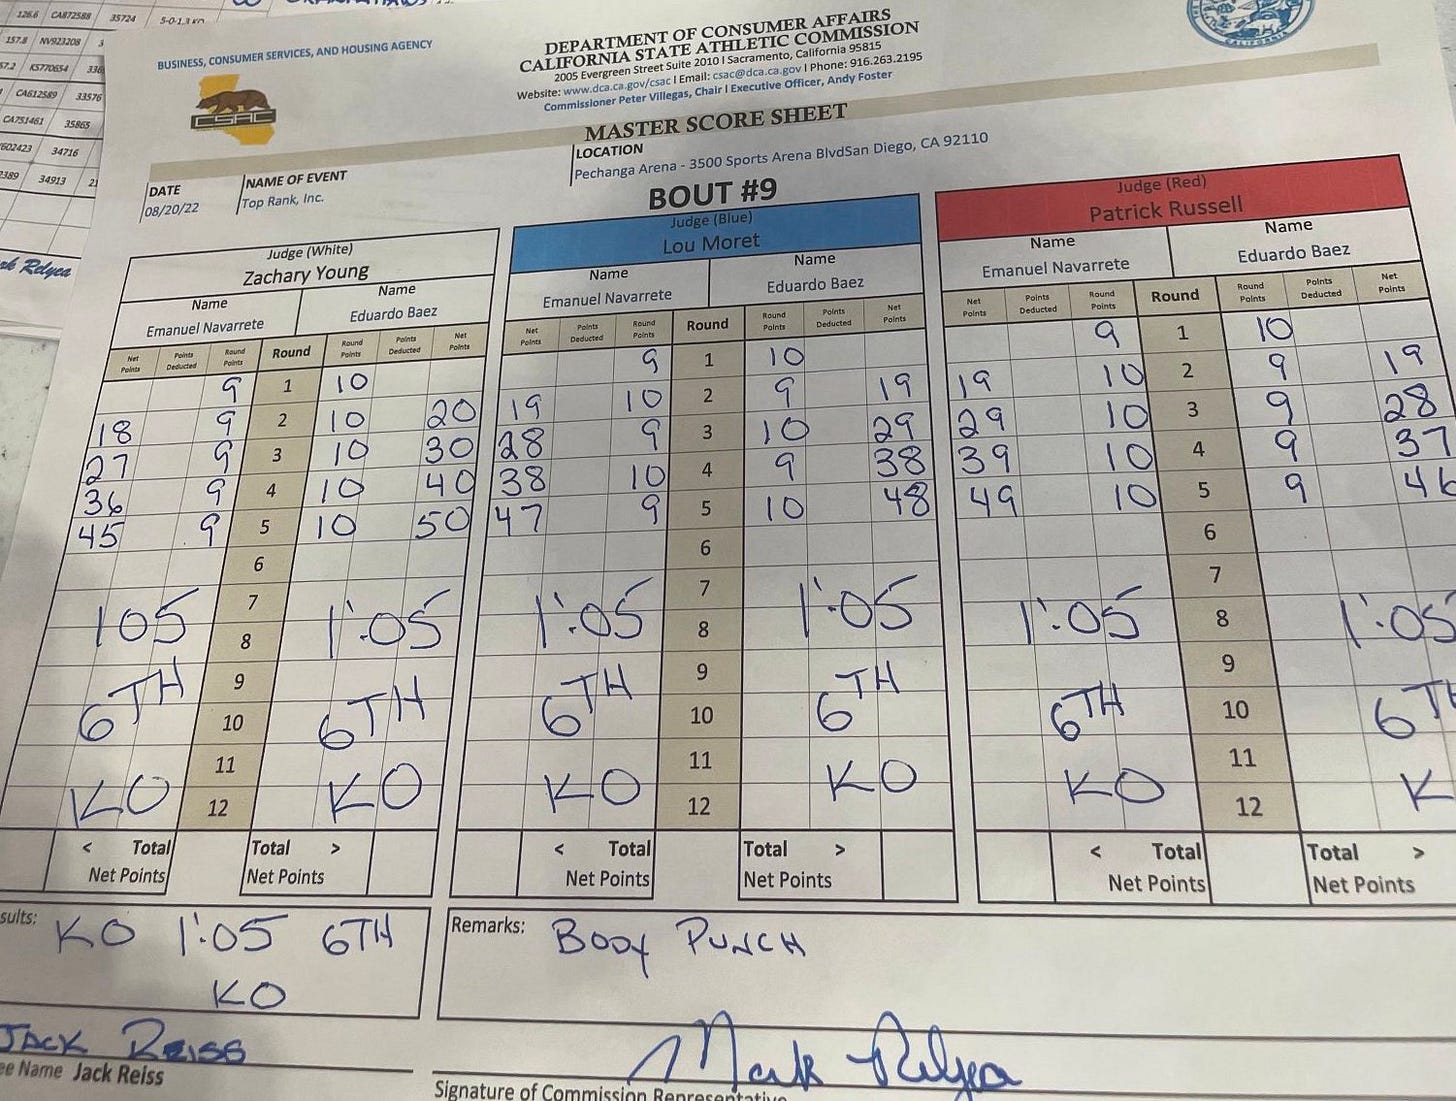 126.6 CA872588 35724 5-0-1,3 KO
157.8 NV923208
57.2 KS770654
CA612589 33576
CA751461 35865
602423 34716
2389 34913
rk Relyea
BUSINESS, CONSUMER SERVICES, AND HOUSING AGENCY
CSAC
DEPARTMENT OF CONSUMER AFFAIRS
CALIFORNIA STATE ATHLETIC COMMISSION
2005 Evergreen Street Suite 2010 I Sacramento, California 95815
Website: www.dca.ca.gov/csac I Email: csac@dca.ca.gov I Phone: 916.263.2195
Commissioner Peter Villegas, Chair I Executive Officer, Andy Foster
MASTER SCORE SHEET
DATE NAME OF EVENT LOCATION
08/20/22 Top Rank, Inc. Pechanga Arena - 3500 Sports Arena BlvdSan Diego, CA 92110
BOUT #9
Judge (White) Judge (Blue) Judge (Red)
Zachary Young Lou Moret Patrick Russell
Name Name Name Name Name Name
Emanuel Navarrete Eduardo Baez Emanuel Navarrete Eduardo Baez Emanuel Navarrete Eduardo Baez
Net Points Points Deducted Round Points Round Round Points Points Deducted Net Points Net Points Points Deducted Round Points Round Round Points Points Deducted Net Points Net Points Points Deducted Round Points Round Round Points Points Deducted Net Points
9 1 10 9 1 10 9 1 10
18 9 2 10 20 19 10 2 9 19 19 10 2 9 19
27 9 3 10 30 28 9 3 10 29 29 10 3 9 28
36 9 4 10 40 38 10 4 9 38 39 10 4 9 37
45 9 5 10 50 47 9 5 10 48 49 10 5 9 46
6 6 6
7 7 7
105 1:05 1:05 1:05 1:05 1:05
8 8 8
9 9 9
6TH 6TH 6TH 6TH 6TH 6TH
10 10 10
11 11 11
KO KO KO KO KO K
12 12 12
< Total Total > < Total Total > < Total Total >
Net Points Net Points Net Points Net Points Net Points Net Points
sults: KO 1:05 6TH
KO
Remarks: BODY PUNCH
JACK REISS
ee Name Jack Reiss
Mark Relyea
Signature of Commission Representative